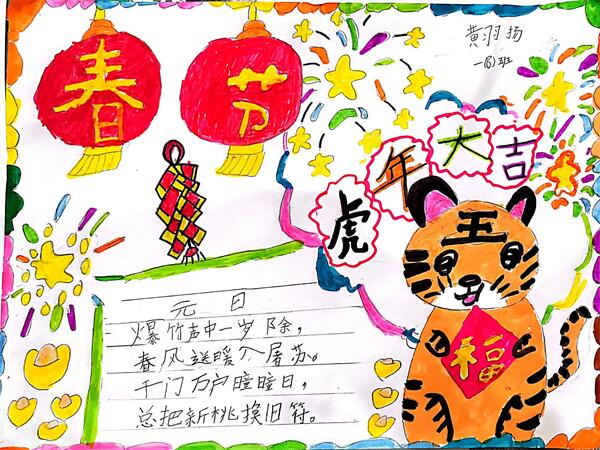 春节
黄羽扬
一(6)班
虎年大吉
王
福
元日
爆竹声中一岁除,
春风送暖入屠苏。
千门万户曈曈日,
总把新桃换旧符。